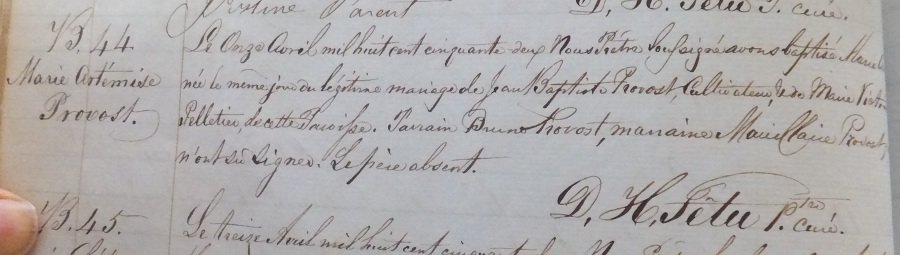 Justine Parent
D, H. Têtu P. curé.
B. 44
Marie Artémise
Provost.
Le Onze Avril mil huit cent cinquante deux Nous Prêtre soussigné avons baptisé Marie
née le même jour du légitime mariage de Jean Baptiste Provost, Cultivateur, & de Marie
Pelletier, de cette Paroisse. Parrain Bruno Provost, marraine Marie Claire Provost,
n'ont su signer. Le père absent.
D, H. Têtu Ptre curé.
B. 45.
Le treize Avril mil huit cent cinquante